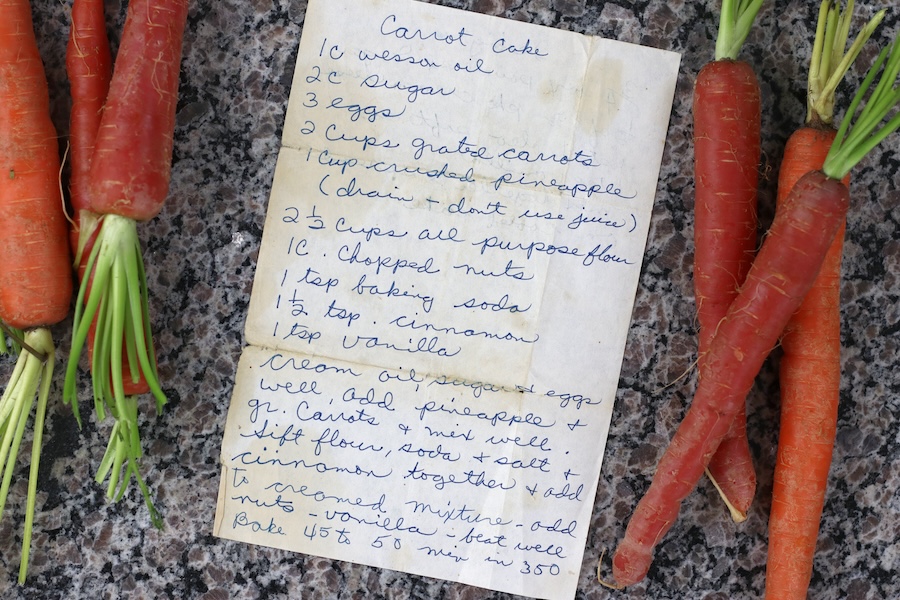 Carrot Cake
1C wesson oil
2C sugar
3 eggs
2 Cups grated carrots
1 Cup crushed pineapple
(drain + don't use juice)
2 1/2 Cups all purpose flour
1C. Chopped nuts
1 tsp baking soda
1 1/2 tsp. cinnamon
1 tsp vanilla
. cream oil, sugar + eggs
well, add pineapple +
gr. Carrots + mix well.
Sift flour, soda + salt +
cinnamon together + add
To creamed mixture - add
nuts - vanilla - beat well
Bake 45 to 50 min in 350